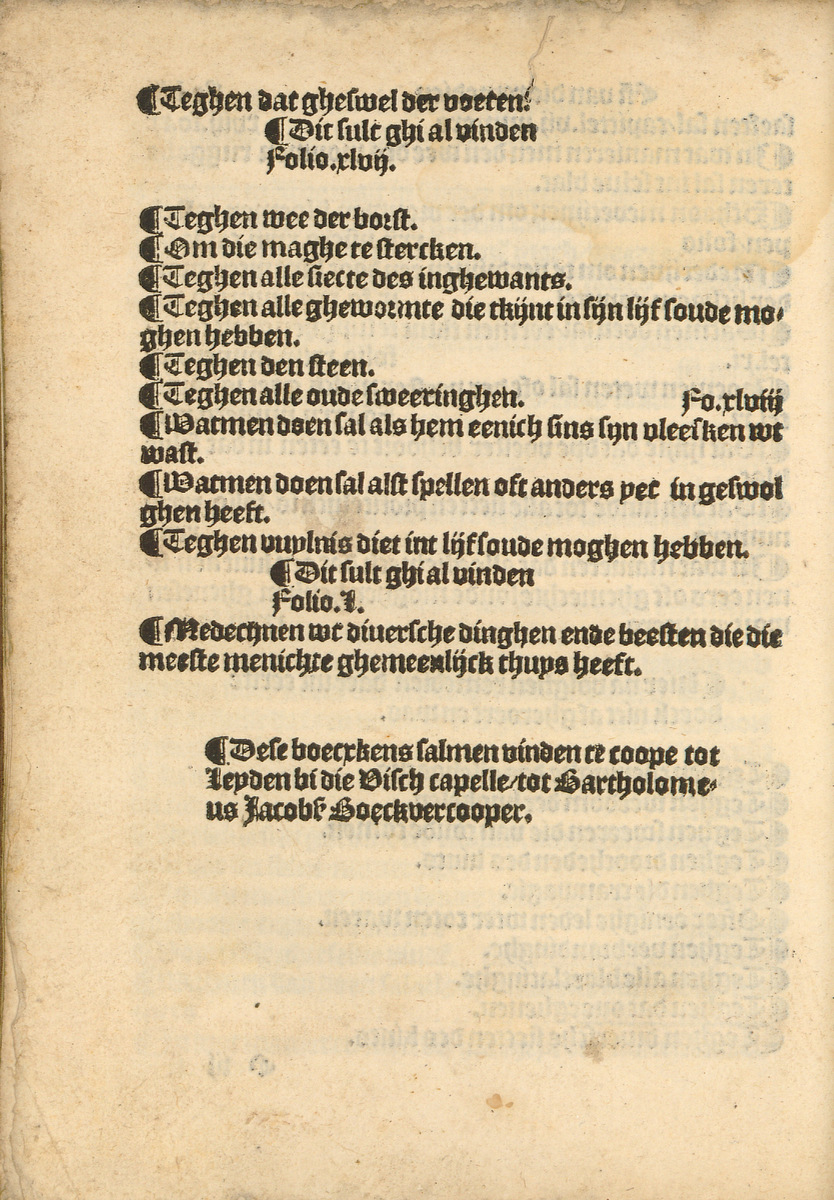 ¶Teghen dat gheswel der voeten.
¶Dit sult ghi al vinden
Folio.xlvij.
¶Teghen wee der borst.
¶Om die maghe te stercken.
¶Teghen alle siecte des inghewants.
¶Teghen alle ghewormte die tkijnt in sijn lijf soude mo-
ghen hebben.
¶Teghen den steen.
¶Teghen alle oude sweeringhen. Fo.xlviij
¶Watmen doen sal als hem eenich sins syn vleesken wt
wast.
¶Watmen doen sal alst spellen oft anders yet in geswol
ghen heeft.
¶Teghen vuylnis diet int lijf soude moghen hebben.
¶Dit sult ghi al vinden
Folio.l.
¶Medecynen wt diuersche dinghen ende beesten die die
meeste menichte ghemeenlijck thuys heeft.
¶Dese boecxkens salmen vinden te coope tot
Leyden bi die Visch capelle/tot Bartholome-
us Jacobs Boeckvercooper.